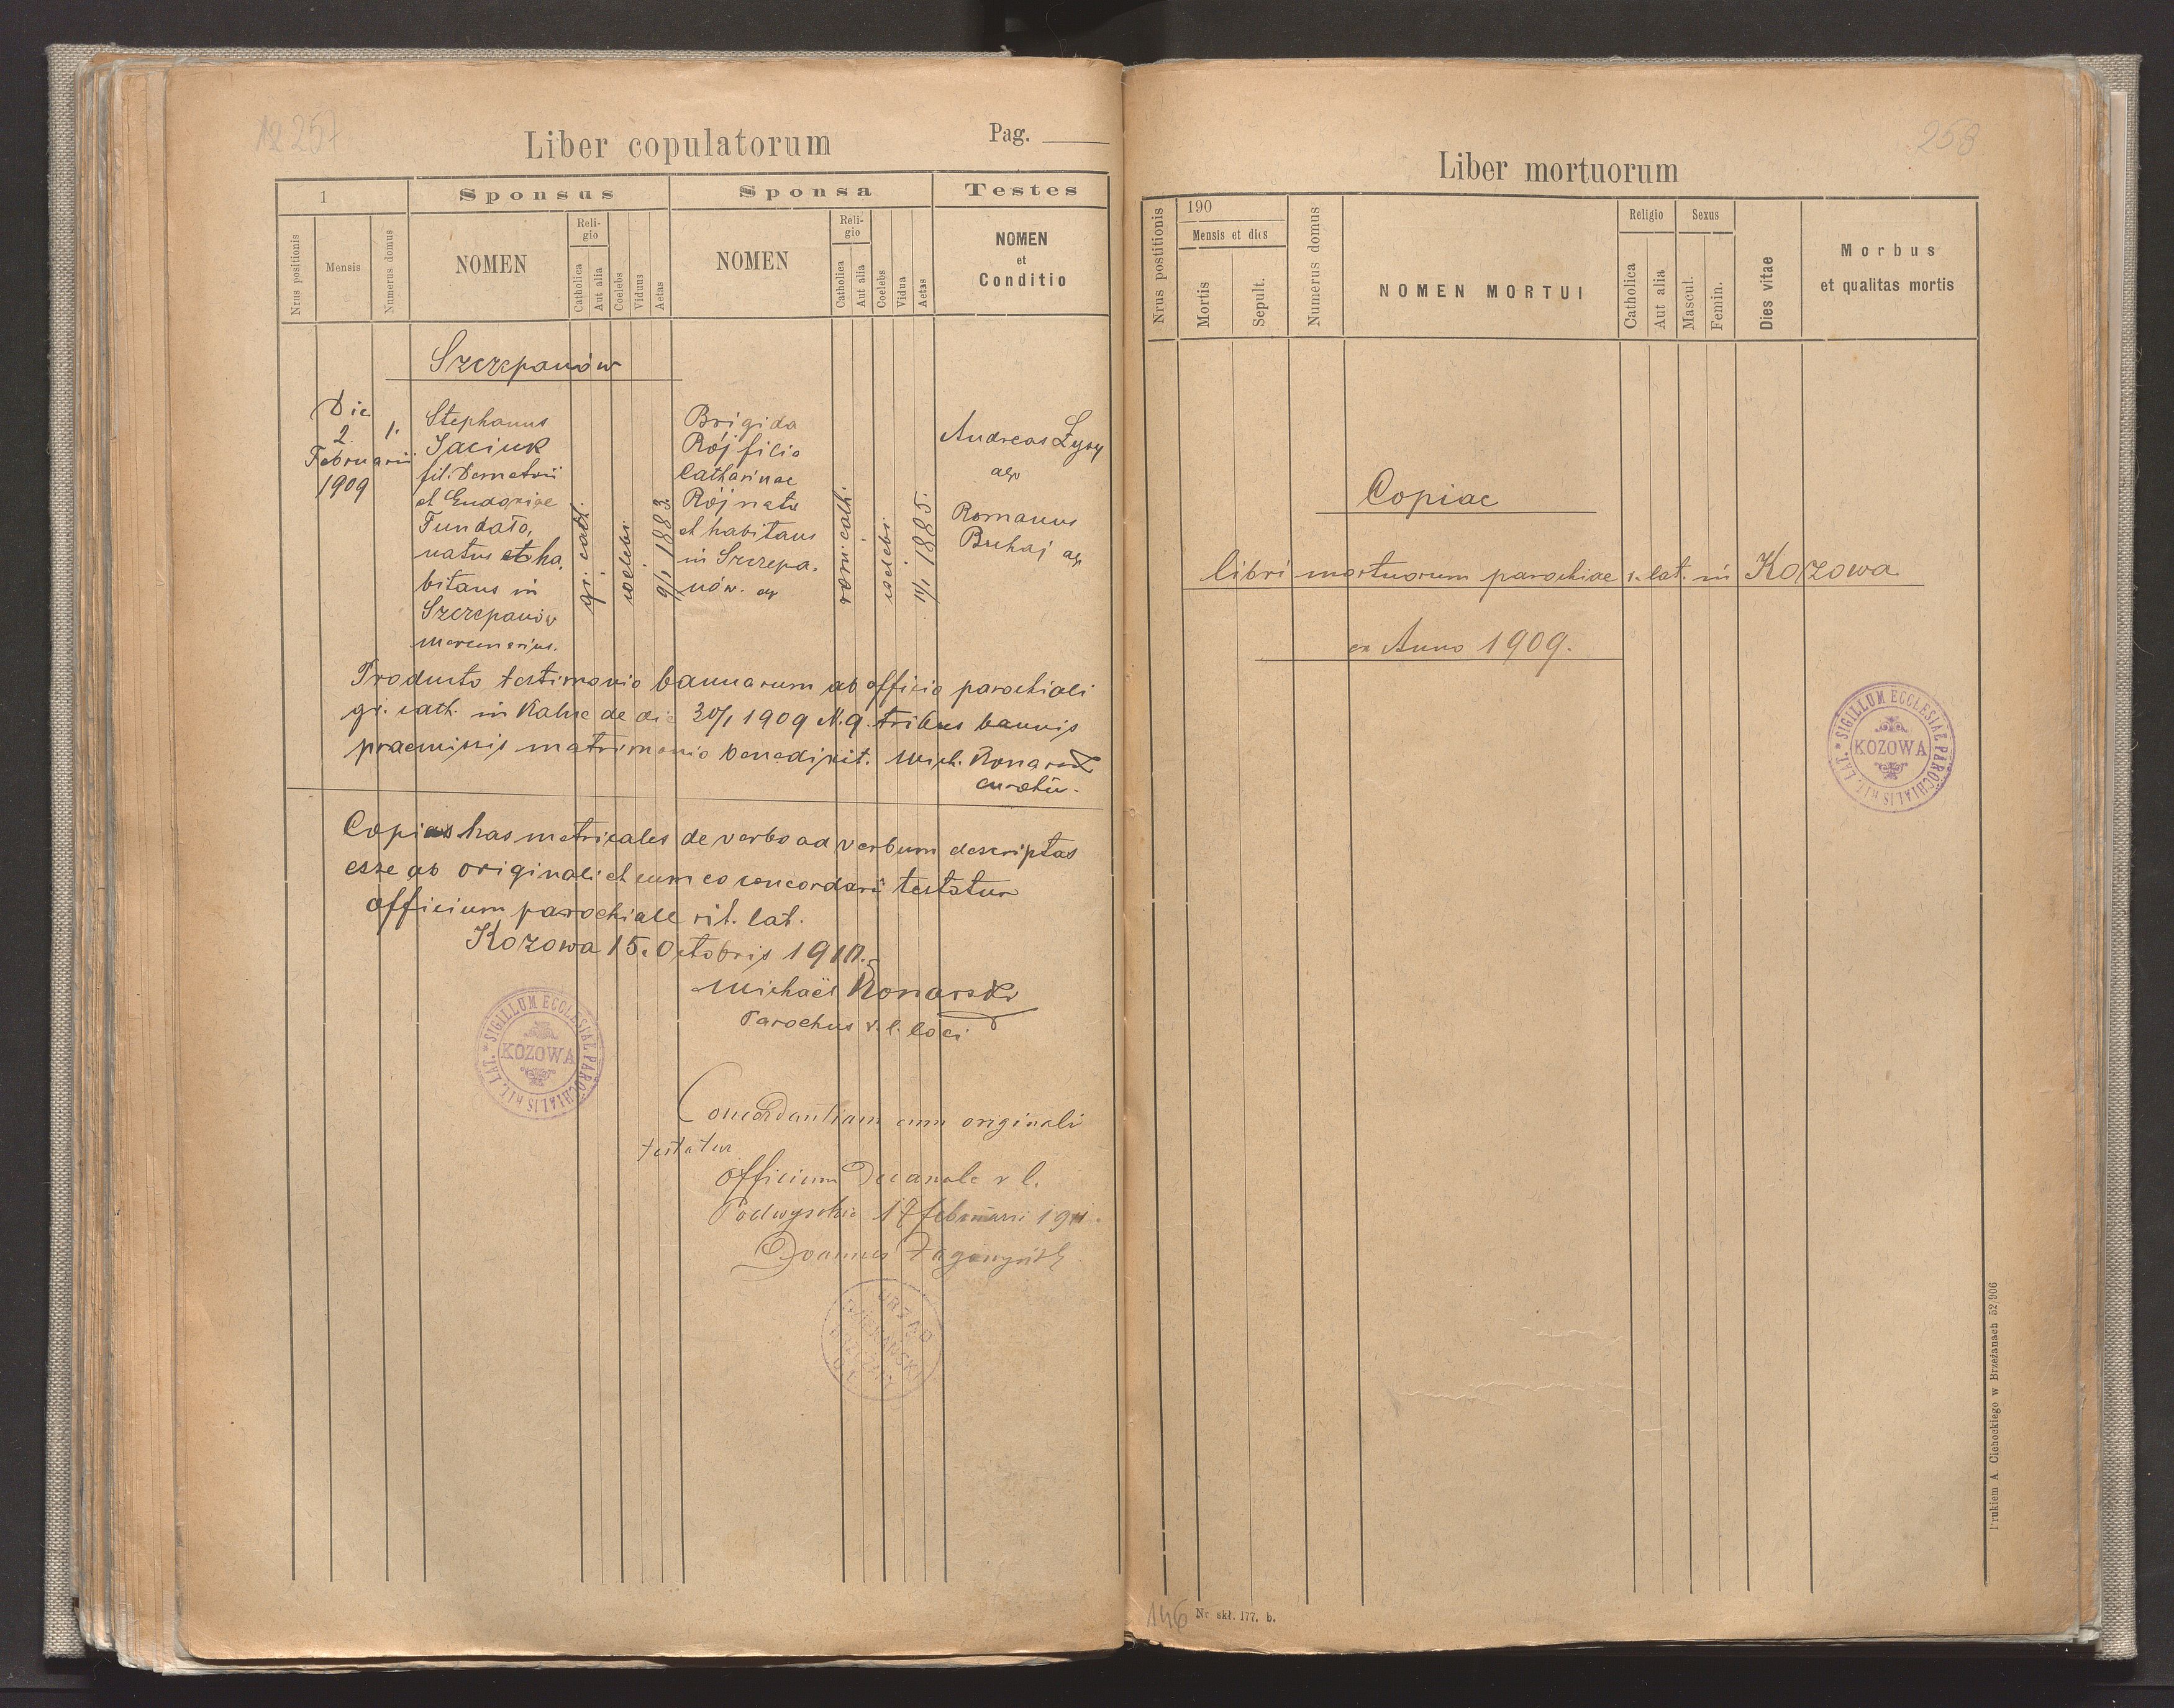 257
Liber copulatorum
Pag.
1
Sponsus
Sponsa
Testes
Nrus positionis
Mensis
Numerus domus
NOMEN
Religio
Catholica
Aut alia
Coelebs
Viduus
Aetas
NOMEN
Religio
Catholica
Aut alia
Coelebs
Vidua
Aetas
NOMEN
et
Conditio
Szczepanów
Die
2.
Februarii
1909
1.
Stephanus
Jaciuk
fil. Demetrii
et Eudoxiae
Fundało,
natus et ha.
bitans in
Szczepanów
mercenarius.
gr. cath.
coelebs
9/1 1883.
Brigida
Rój filia
Catharinae
Rój nata
et habitans
in Szczepa.
nów. agr
rom. cath.
coelebs
14/1 1885.
Andreas Łysy
agr
Romanus
Buhaj agr
Producto testimonio bannorum ab officio parochiali
gr. cath. in Kalne de die 30/1 1909 N. 9. tribus bannis
praemissis matrimonio benedixit. Mich. Konarski
curatus.
Copias has metricales de verbo ad verbum descriptas
esse ab originali et cum eo concordari testatur
officium parochiale rit. lat.
Kozowa 15. Octobris 1910.
Michaël Konarski
Parochus r. l. loci
SIGILLUM ECCLESIAE PAROCHIALIS RIT. LAT.
KOZOWA
Concordantiam cum originali
testatur
Officium Decanale r l.
Podwysokie 17 februarii 1911.
Joannes
URZĄD
DZIEKAŃSKI
258
Liber mortuorum
Nrus postitionis
190
Mensis et dies
Mortis
Sepult.
Numerus domus
NOMEN MORTUI
Religio
Catholica
Aut alia
Sexus
Mascul.
Femin.
Dies vitae
Morbus
et qualitas mortis
Copiae
libri mortuorum parochiae r. lat. in Kozowa
ex Anno 1909.
SIGILLUM ECCLESIAE PAROCHIALIS RIT. LAT.
KOZOWA
Drukiem A. Cichockiego w Brzeżanach 52/906
146
Nr skł. 177. b.